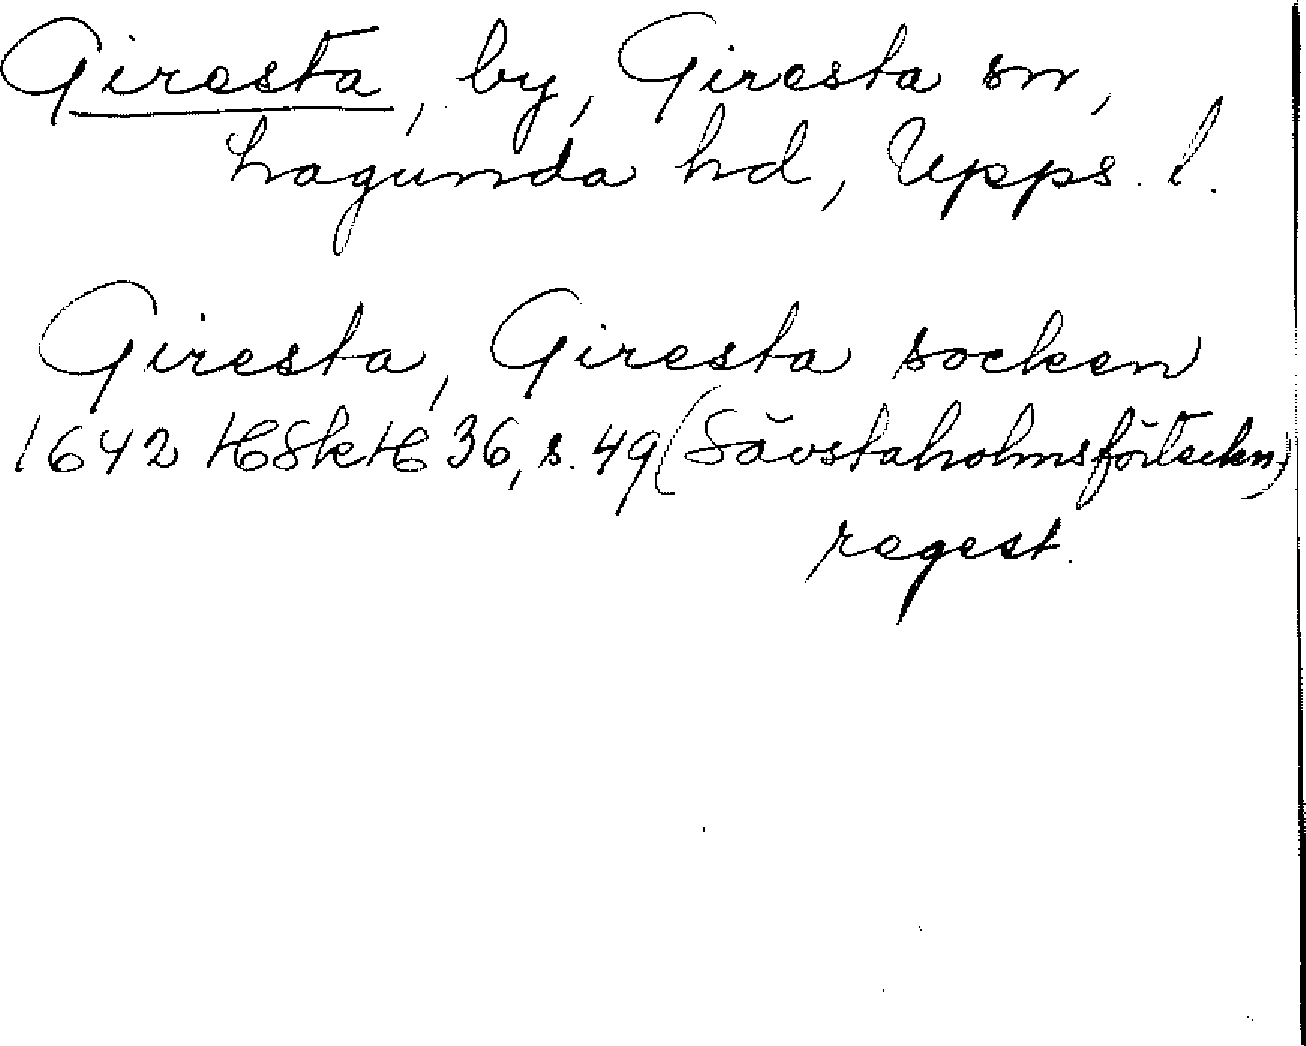 Giresta, by, Giresta sn,
Lagunda hd, Upps. l.
Giresta, Giresta socken
1642 HSkH 36, s. 49 (Sävstaholmsförteckn)
regest.